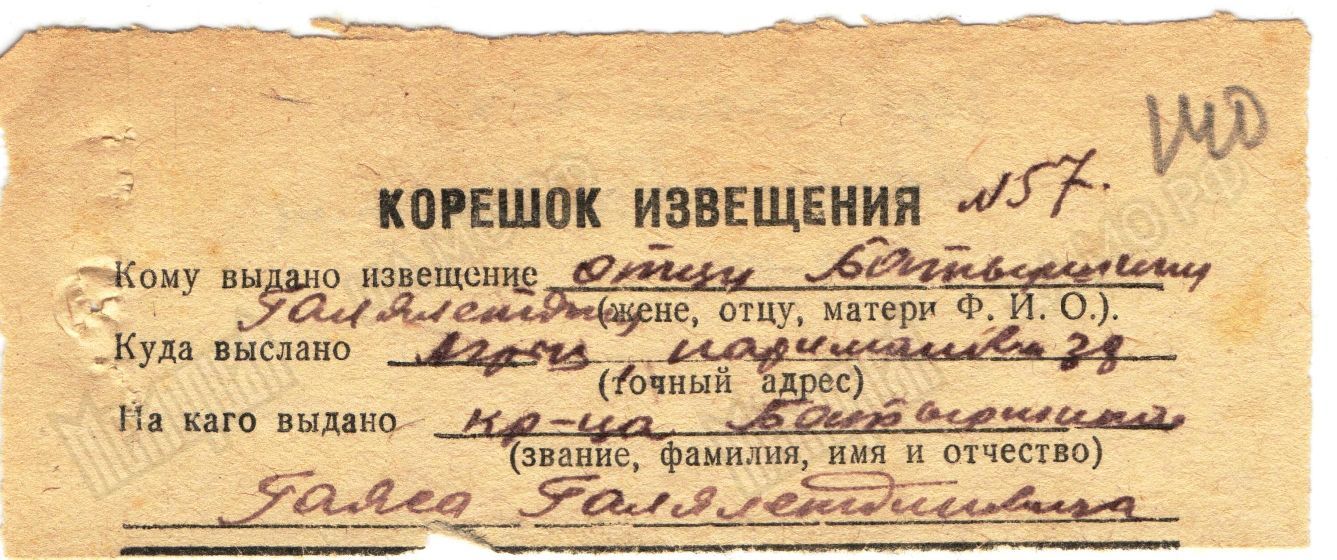 140
КОРЕШОК ИЗВЕЩЕНИЯ №57.
Кому выдано извещение отцу Батыршину
Галялетдину (жене, отцу, матери Ф. И. О.).
Куда выслано Агрыз, Нариманова 38
(точный адрес)
На каго выдано кр-ца Батыршина
(звание, фамилия, имя и отчество)
Гаяса Галялетдиновича